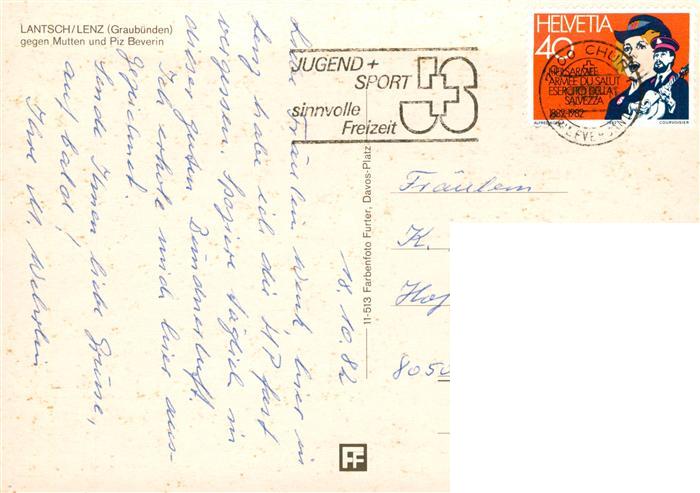 LANTSCH/LENZ (Graubünden)
gegen Mutten und Piz Beverin
JUGEND +
SPORT
sinnvolle
Freizeit
HELVETIA
40
CHUR
HEILSARMEE
ARMÉE DU SALUT
ESERCITO DELLA
SALVEZZA
1882-1982
COURVOISIER
11-513 Farbenfoto Furter, Davos-Platz
18.10.82
Fräulein, hier in
Lenz habe ich die HP fast
vergessen. Spaziere täglich in
dieser guten Bündnerluft.
Ich erhole mich hier aus-
gezeichnet.
Sende Ihnen liebe Grüsse,
auf bald!
Ihre M.
Fräulein
K.
Hof
8050
FF